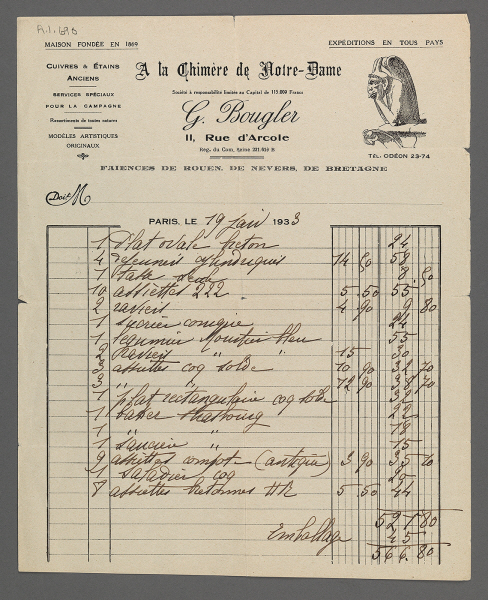 A.1.690
MAISON FONDÉE EN 1869
EXPÉDITIONS EN TOUS PAYS
CUIVRES & ÉTAINS
ANCIENS
SERVICES SPÉCIAUX
POUR LA CAMPAGNE
Réassortiments de toutes natures
MODÈLES ARTISTIQUES
ORIGINAUX
A la Chimère de Notre-Dame
Société à responsabilité limitée au Capital de 115.000 Francs
G. Bougler
11, Rue d'Arcole
Reg. du Com. Seine
TÉL. ODÉON 23-74
FAIENCES DE ROUEN, DE NEVERS, DE BRETAGNE
Doit M
PARIS, LE 19 juin 1933
1 plat ovale breton 24
4 dejeuners cylindriques 14 50 58
1 tasse seule 8 50
10 assiettes 222 5.50 55
2 raviers 4 90 9 80
1 sucrier conique 24
1 legumier Moustier bleu 55
2 Raviers " " 15 30
3 assiettes coq solde 10 90 32 70
3 " " 12 90 38 70
1 plat rectangulaire coq solde
1 Strasbourg 22
1 " 18
1 saucière " 15
assiettes compote (antique) 3 90 35
1 saladier coq
8 assiettes HR 5.50 44
521 80
Emballage 45
566.80